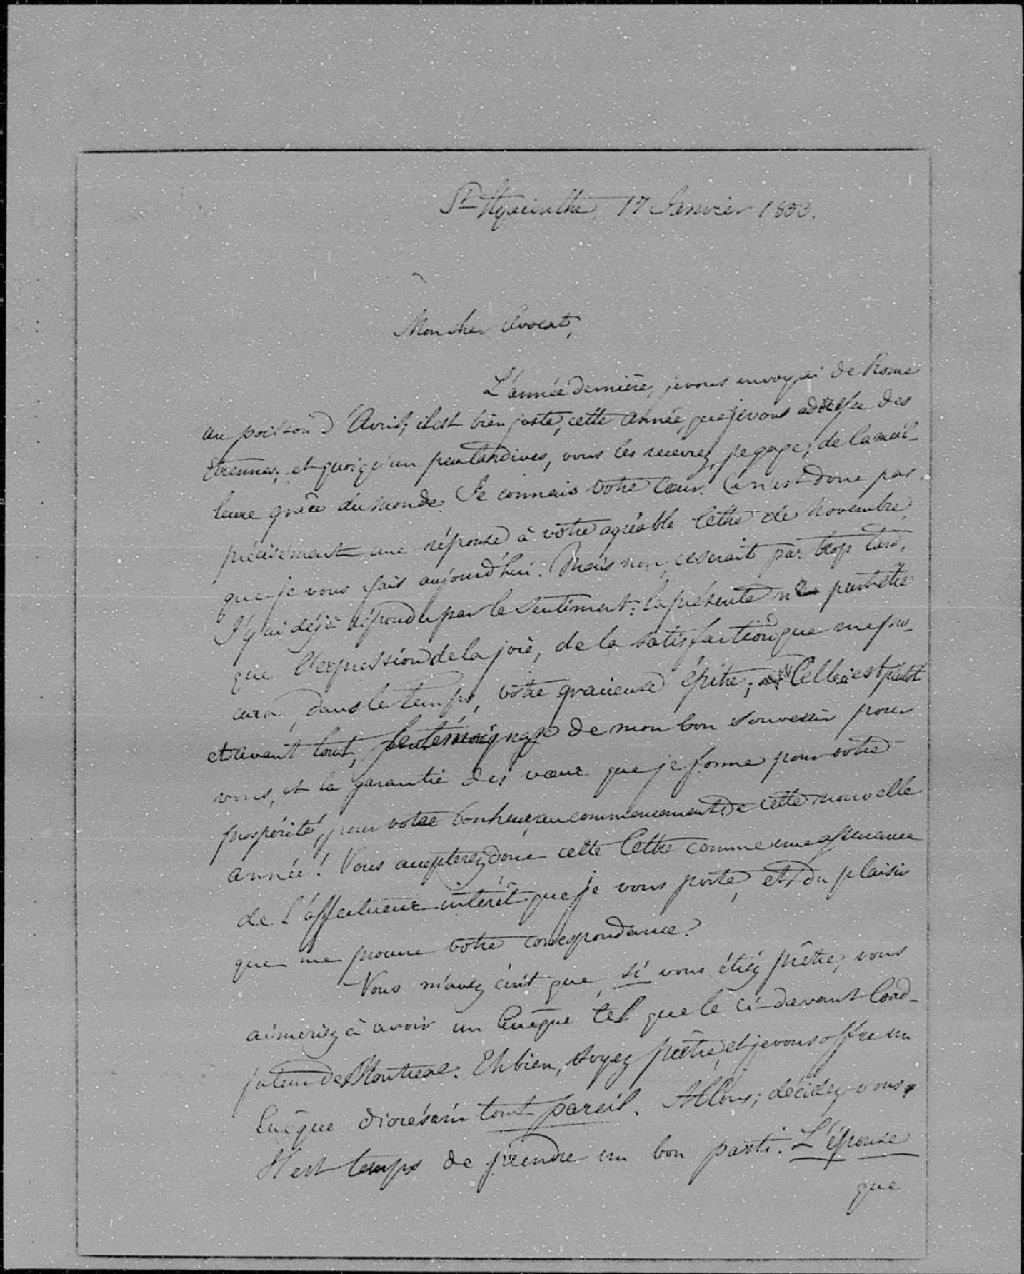 St Hyacinthe, 17 Janvier 1853.
Mon cher Avocat,
L'année dernière, je vous envoyai de Rome
un poisson d'Avril; il est bien juste, cette année, que je vous adresse des
Etrennes; et quoiqu'un peu tardives, vous les recevrez, je gage, de la meil-
leure grâce du monde. Je connais votre cœur. Ce n'est donc pas
précisément une réponse à votre agréable lettre de Novembre,
que je vous fais aujourd'hui. Mais non, ce serait par trop tard.
J'y ai déjà répondu par le sentiment: la présente n'est peut-être
que l'expression de la joie, de la satisfaction que me pro-
cura, dans le temps, votre gracieuse épitre; Celle-ci est plutôt
et avant tout, le témoignage de mon bon souvenir pour
vous, et la garantie des vœux que je forme pour votre
prospérité, pour votre bonheur au commencement de cette nouvelle
année! Vous accepterez donc cette lettre comme une assurance
de l'affectueux intérêt que je vous porte, et du plaisir
que me procure votre correspondance.
Vous m'avez écrit que, si vous étiez prêtre, vous
aimeriez à avoir un Evêque tel que le ci-devant Coad-
juteur de Montreal. Eh bien, soyez prêtre, et je vous offre un
Evêque diocésain tout pareil. Allons; décidez-vous,
Il est temps de prendre un bon parti. L'épouse
que